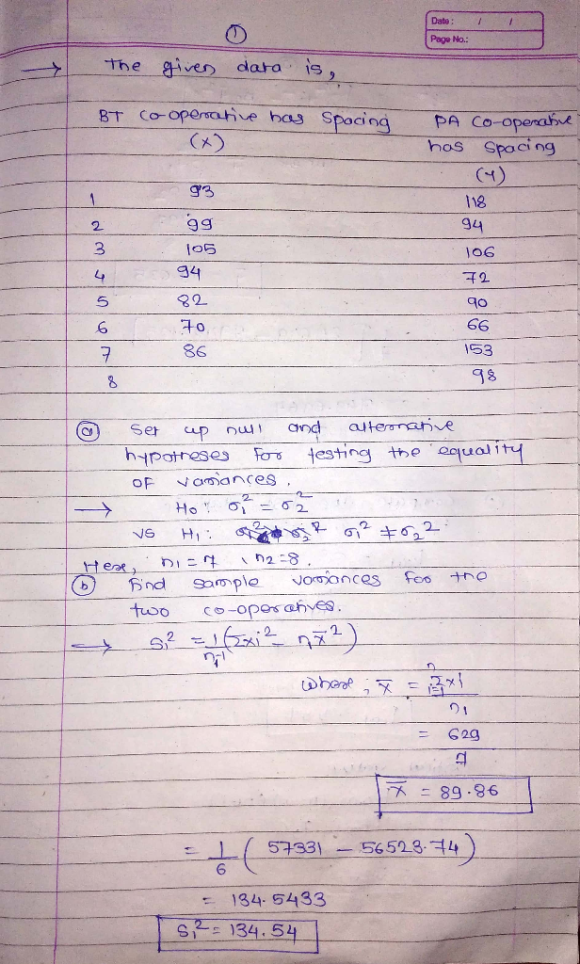 1
Date: / /
Page No.:
→ The given data is,
BT co-operative has spacing PA co-operative
(x) has spacing
(Y)
1 93 118
2 99 94
3 105 106
4 94 72
5 82 90
6 70 66
7 86 153
8 98
(a) Set up null and alternative
hypotheses for testing the equality
of variances.
→ H₀: σ₁² = σ₂²
vs H₁: σ₁² ≠ σ₂²
Here, n₁ = 7, n₂ = 8.
(b) Find sample variances for the
two co-operatives.
→ S₁² = 1/(n₁-1) (Σxi² - n₁x̄²)
where, x̄ = Σⁿᵢ₌₁ xi
n₁
= 629
7
x̄ = 89.86
= 1/6 ( 57331 - 56523.74 )
= 134.5433
S₁² = 134.54